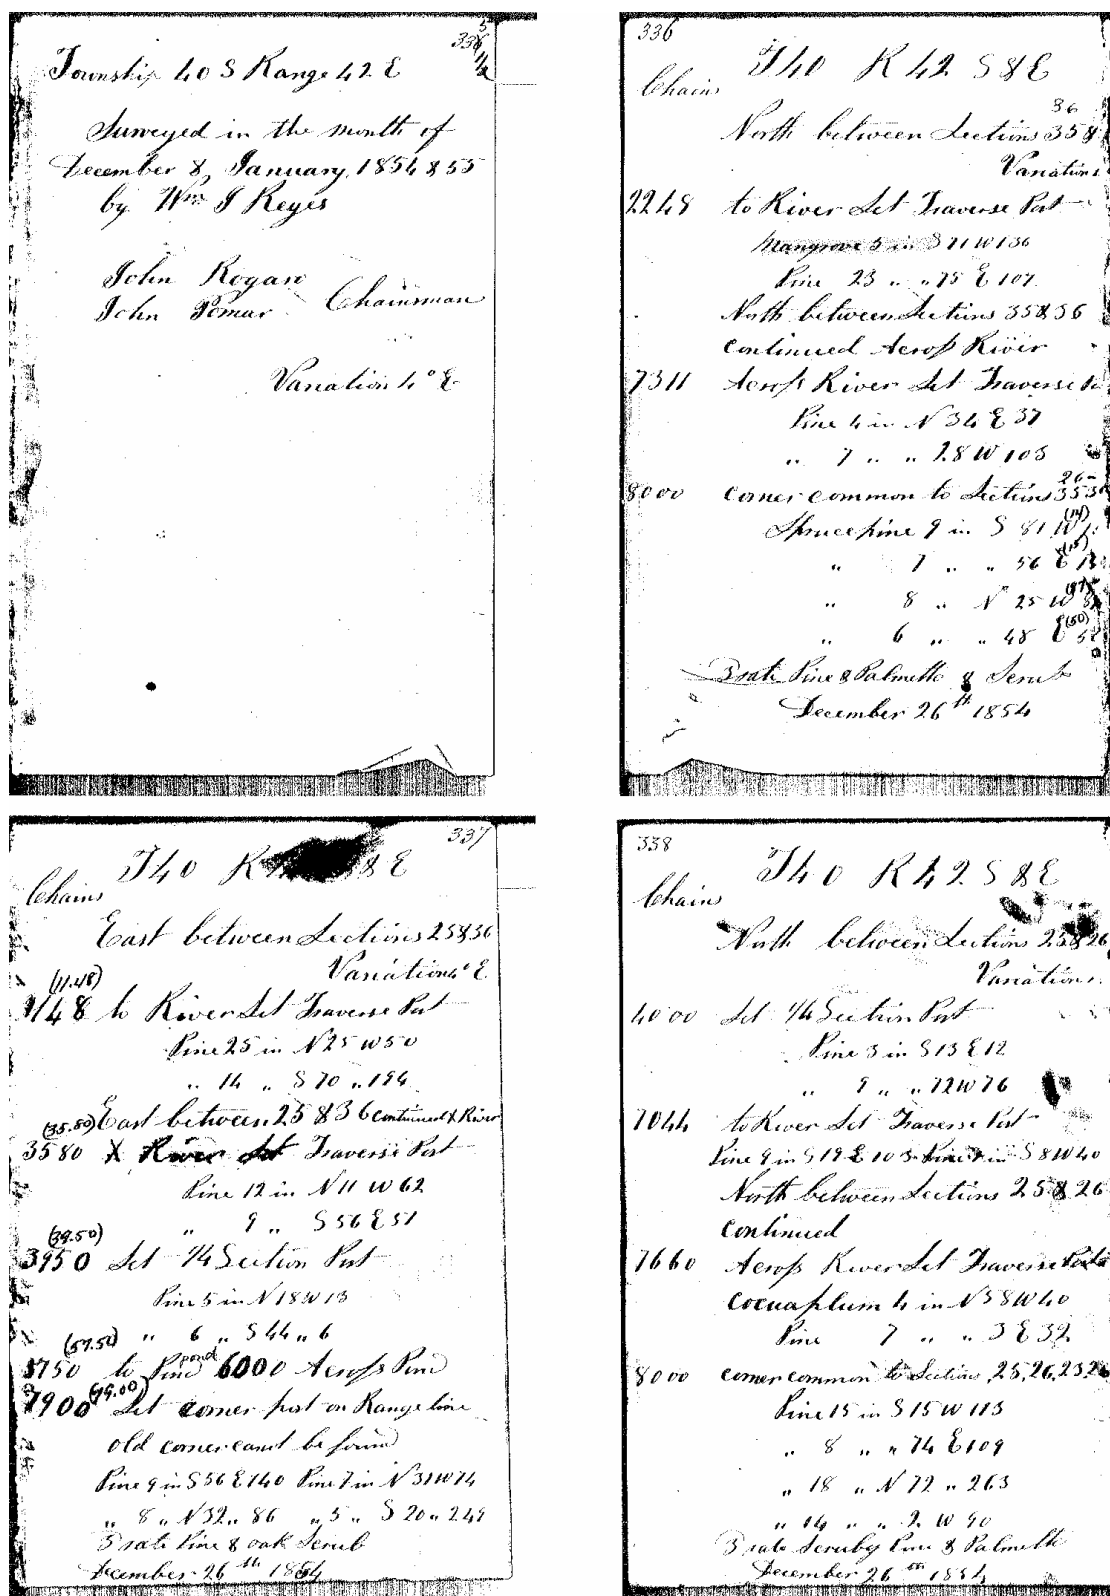 335 1/2
Township 40 S Range 42 E
Surveyed in the month of
December & January, 1854 & 55
by Wm J Reyes
John Rogan
John Pomar Chainsman
Variation 4° E
336
T40 R42 S & E
Chains
36
North between Sections 35 &
Variation
2248 to River Set Traverse Post
Mangrove 5 in S 71 W 136
Pine 23 " " 75 E 107
North between Sections 35 & 36
continued Across River
7311 Across River Set Traverse
Pine 4 in N 34 E 37
" 7 " " 28 W 103
8000 corner common to Sections 26 35 36
Spruce pine 9 in S 81 W (14)
" 7 " " 56 E
" 8 " N 25 W
" 6 " " 48 E (50)
3 rate Pine & Palmetto & Scrub
December 26th 1854
337
T40 R & E
Chains
East between Sections 25 & 36
Variation 4° E
(11.48)
1148 to River Set Traverse Post
Pine 25 in N 25 W 50
" 14 " S 70 " 194
East between 25 & 36 continued X River
(35.80)
3580 X River Set Traverse Post
Pine 12 in N 11 W 62
" 9 " S 56 E 51
(39.50)
3950 Set 1/4 Section Post
Pine 5 in N 18 W 13
" 6 " S 44 " 6
(57.50)
5750 to Pond pond 6000 Across Pond
(79.00)
7900 Set corner post on Range line
old corner cant be found
Pine 9 in S 56 E 140 Pine 7 in N 31 W 74
" 8 " N 32 " 86 " 5 " S 20 " 249
3 rate Pine & oak Scrub
December 26th 1854
338
T40 R42 S & E
Chains
North between Sections 25 & 26
Variation
4000 Set 1/4 Section Post
Pine 3 in S 13 E 12
" 9 " " 72 W 76
7044 to River Set Traverse Post
Pine 9 in S 19 E 103 Pine 9 in S 8 W 40
North between Sections 25 & 26
continued
7660 Across River Set Traverse Post
Cocoaplum 4 in N 58 W 40
Pine 7 " " 3 E 39
8000 corner common to Sections 25, 26, 23
Pine 15 in S 15 W 113
" 8 " " 74 E 109
" 18 " N 72 " 263
" 14 " " 2 W 90
3 rate Scruby Pine & Palmetto
December 26th 1854